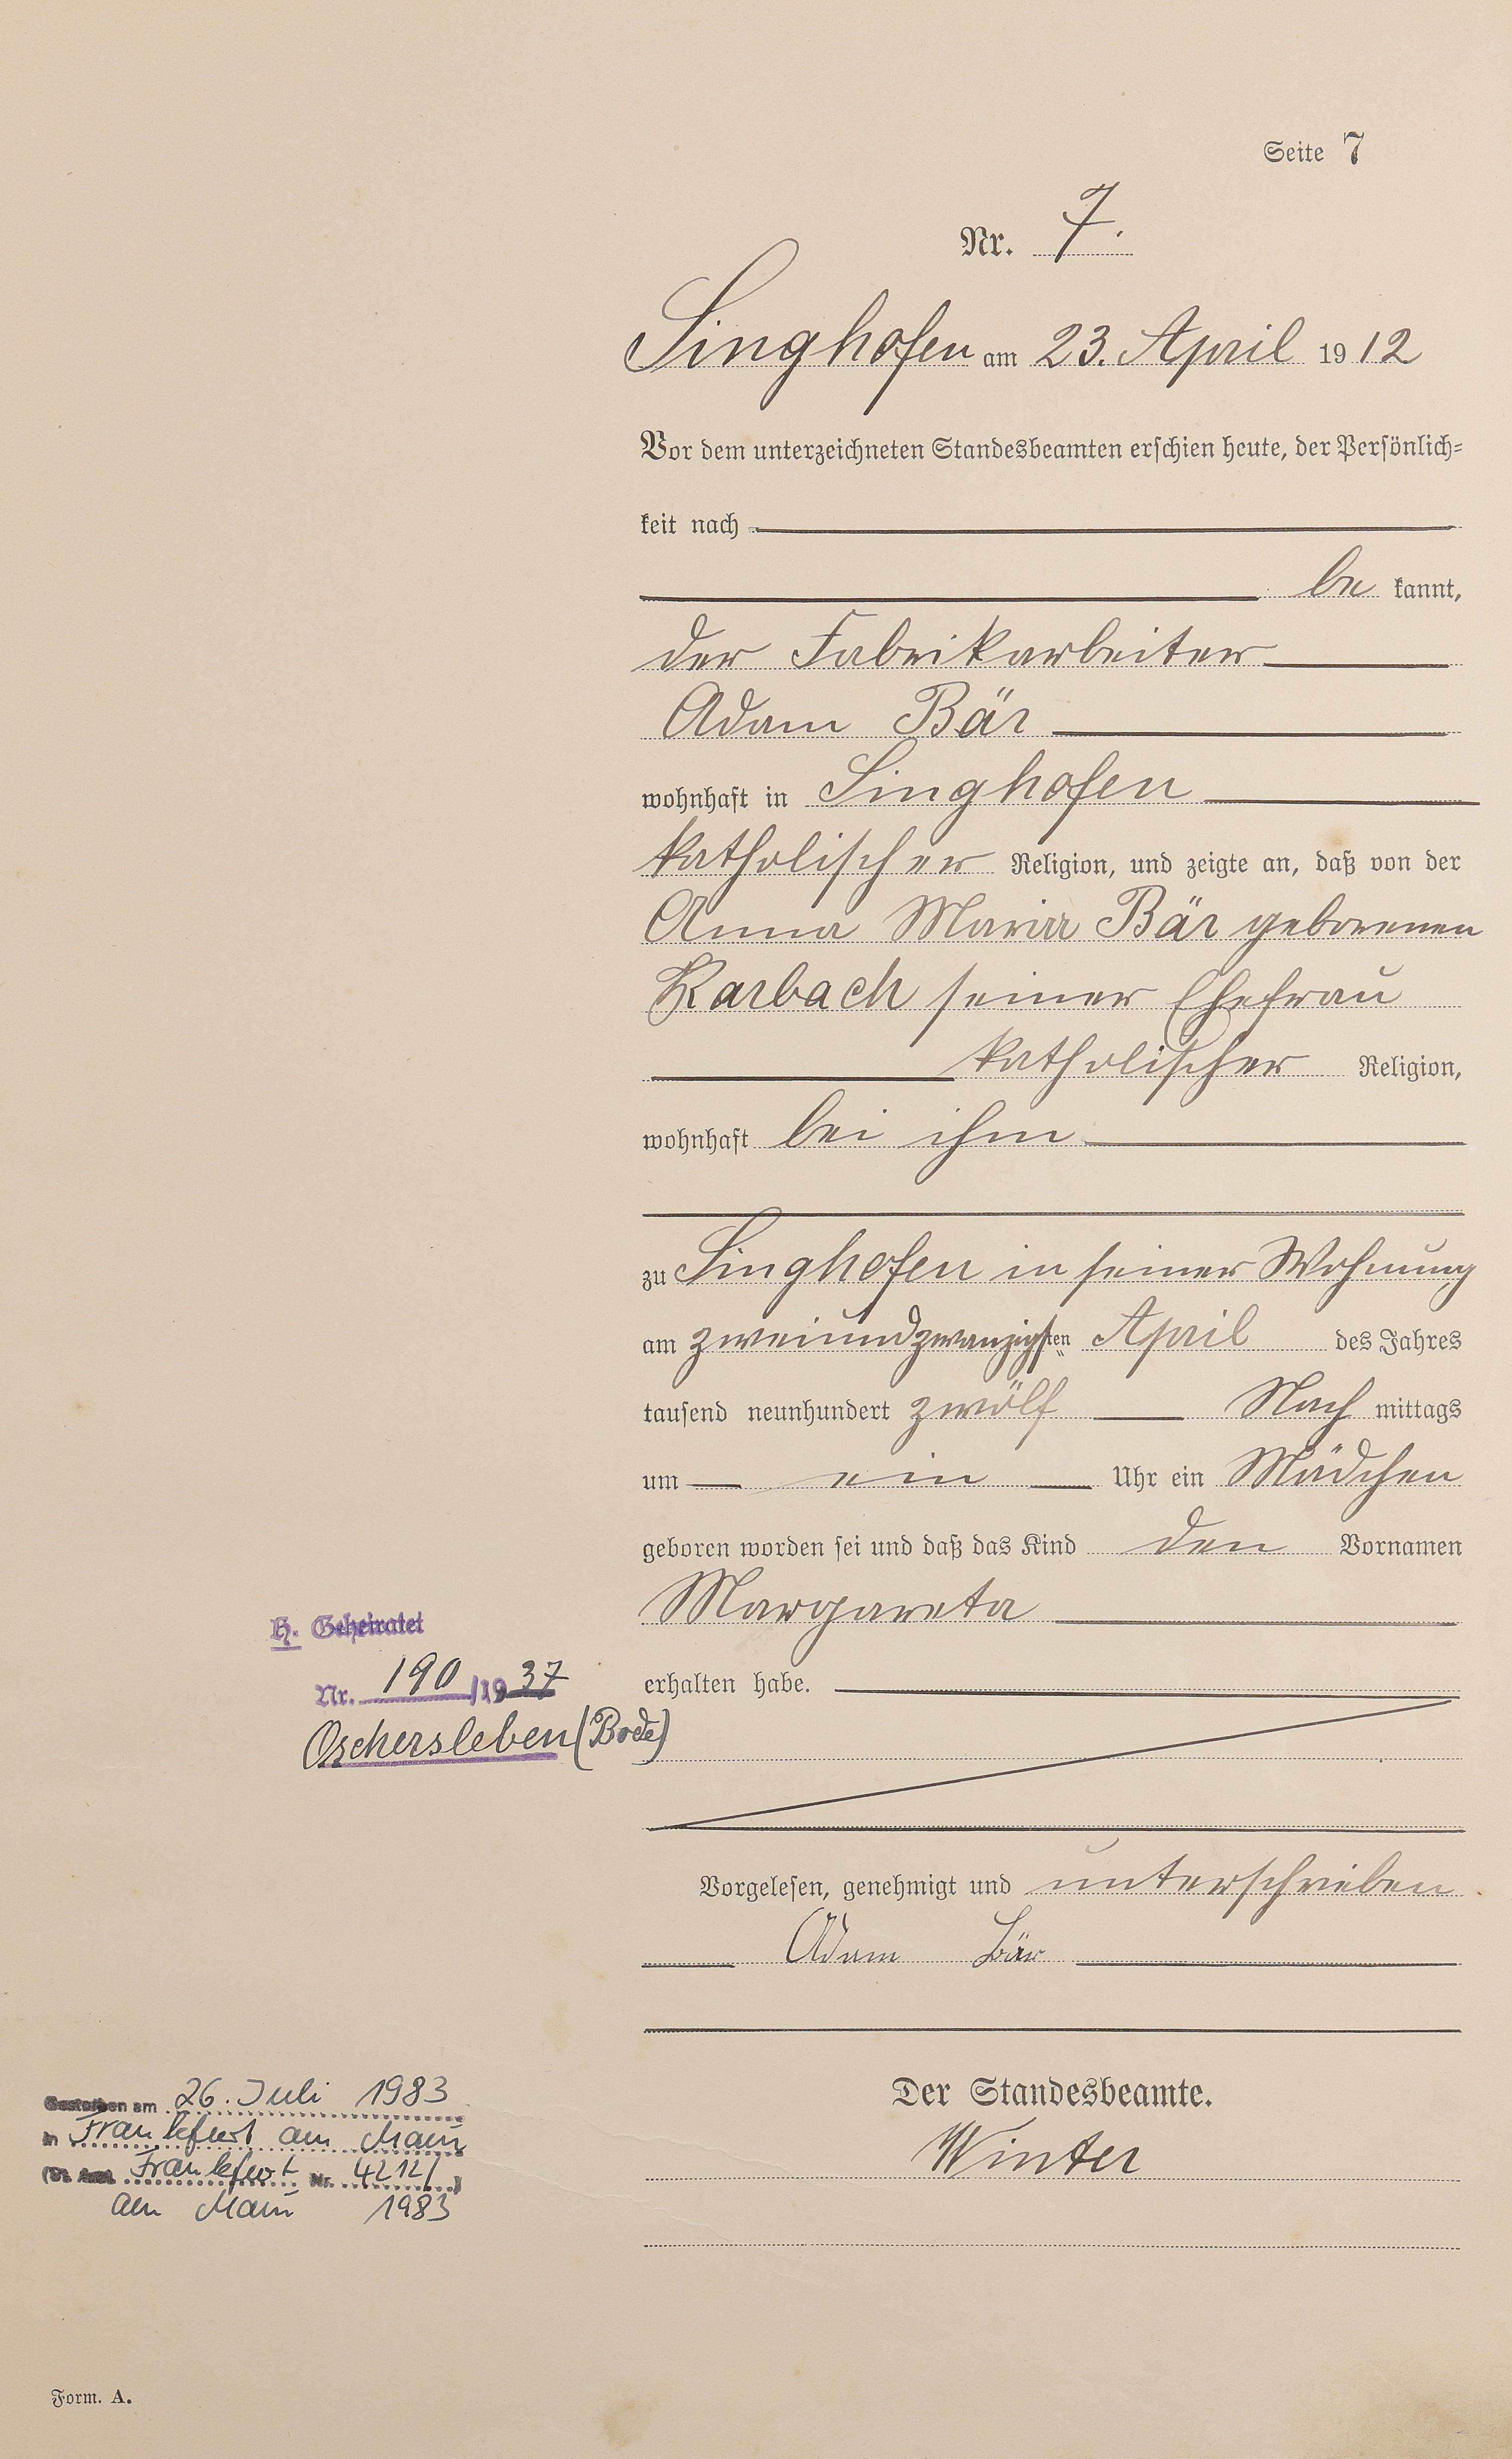 Seite 7
Nr. 7.
Singhofen am 23. April 1912
Vor dem unterzeichneten Standesbeamten erschien heute, der Persönlich-
keit nach
be kannt,
der Fabrikarbeiter
Adam Bär
wohnhaft in Singhofen
katholischer Religion, und zeigte an, daß von der
Anna Maria Bär geborenen
Karbach seiner Ehefrau
katholischer Religion,
wohnhaft bei ihm
zu Singhofen in seiner Wohnung
am zweiundzwanzigsten April des Jahres
tausend neunhundert zwölf Nach mittags
um ein Uhr ein Mädchen
geboren worden sei und daß das Kind den Vornamen
Margareta
erhalten habe.
H. Geheiratet
Nr. 190/1937
Oschersleben (Bode)
Vorgelesen, genehmigt und unterschrieben
Adam Bär
Der Standesbeamte.
Winter
Gestorben am 26. Juli 1983
in Frankfurt am Main
(St. Amt Frankfurt Nr. 4212/)
am Main 1983
Form. A.